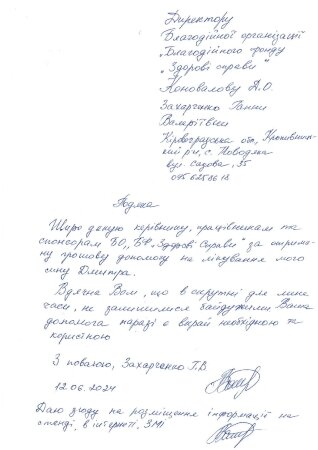 Директору
Благодійної організації
„Благодійного фонду
„Здорові справи"
Коновалову А.О.
Захарченко Ганни
Валеріївни
Кіровоградська обл, Кропивниць-
кий р-н, с.
вул. Садова, 35
Подяка
Щиро дякую керівнику, працівникам та
спонсорам БО „БФ „Здорові справи" за отрима-
ну грошову допомогу на лікування мого
сину Дмитра.
Вдячна Вам, що в скрутні для мене
часи, не залишилися байдужими. Ваша
допомога наразі є вкрай необхідною та
корисною
З повагою, Захарченко Г.В
12.06.2024
Даю згоду на розміщення інформації на
стенді, в інтернеті, ЗМІ.